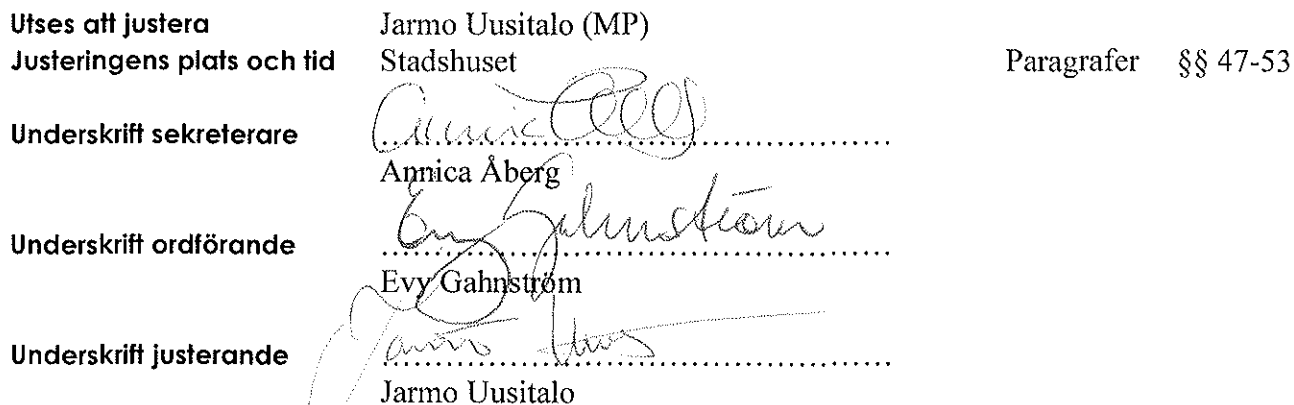 Utses att justera Jarmo Uusitalo (MP)
Justeringens plats och tid Stadshuset Paragrafer §§ 47-53
Underskrift sekreterare
Annica Åberg
Underskrift ordförande Evy Gahnström
Evy Gahnström
Underskrift justerande
Jarmo Uusitalo